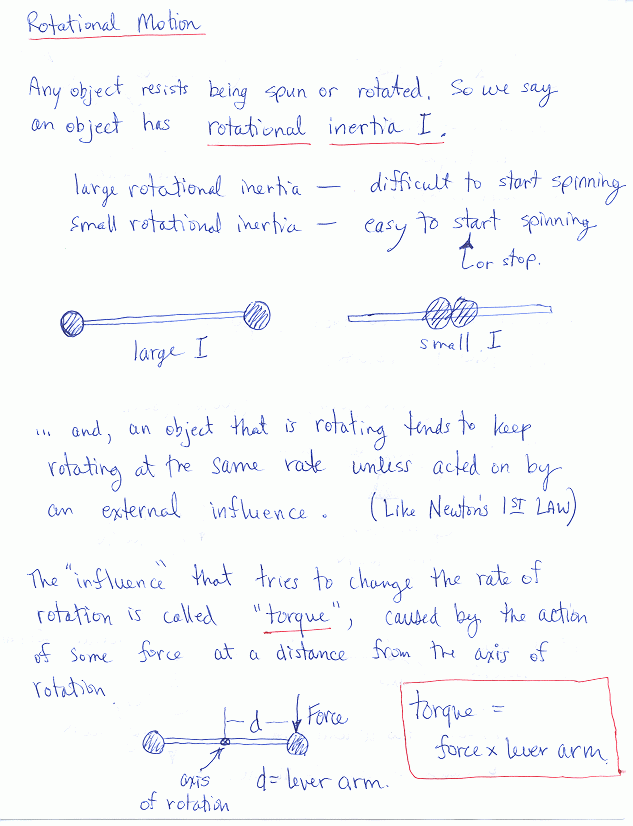 Rotational Motion
Any object resists being spun or rotated. So we say
an object has rotational inertia I.
large rotational inertia — difficult to start spinning
small rotational inertia — easy to start spinning
or stop.
large I
small I
... and, an object that is rotating tends to keep
rotating at the same rate unless acted on by
an external influence. (Like Newton's 1ST LAW)
The "influence" that tries to change the rate of
rotation is called "torque", caused by the action
of some force at a distance from the axis of
rotation.
d Force
axis
of rotation
d = lever arm.
torque =
force x lever arm.